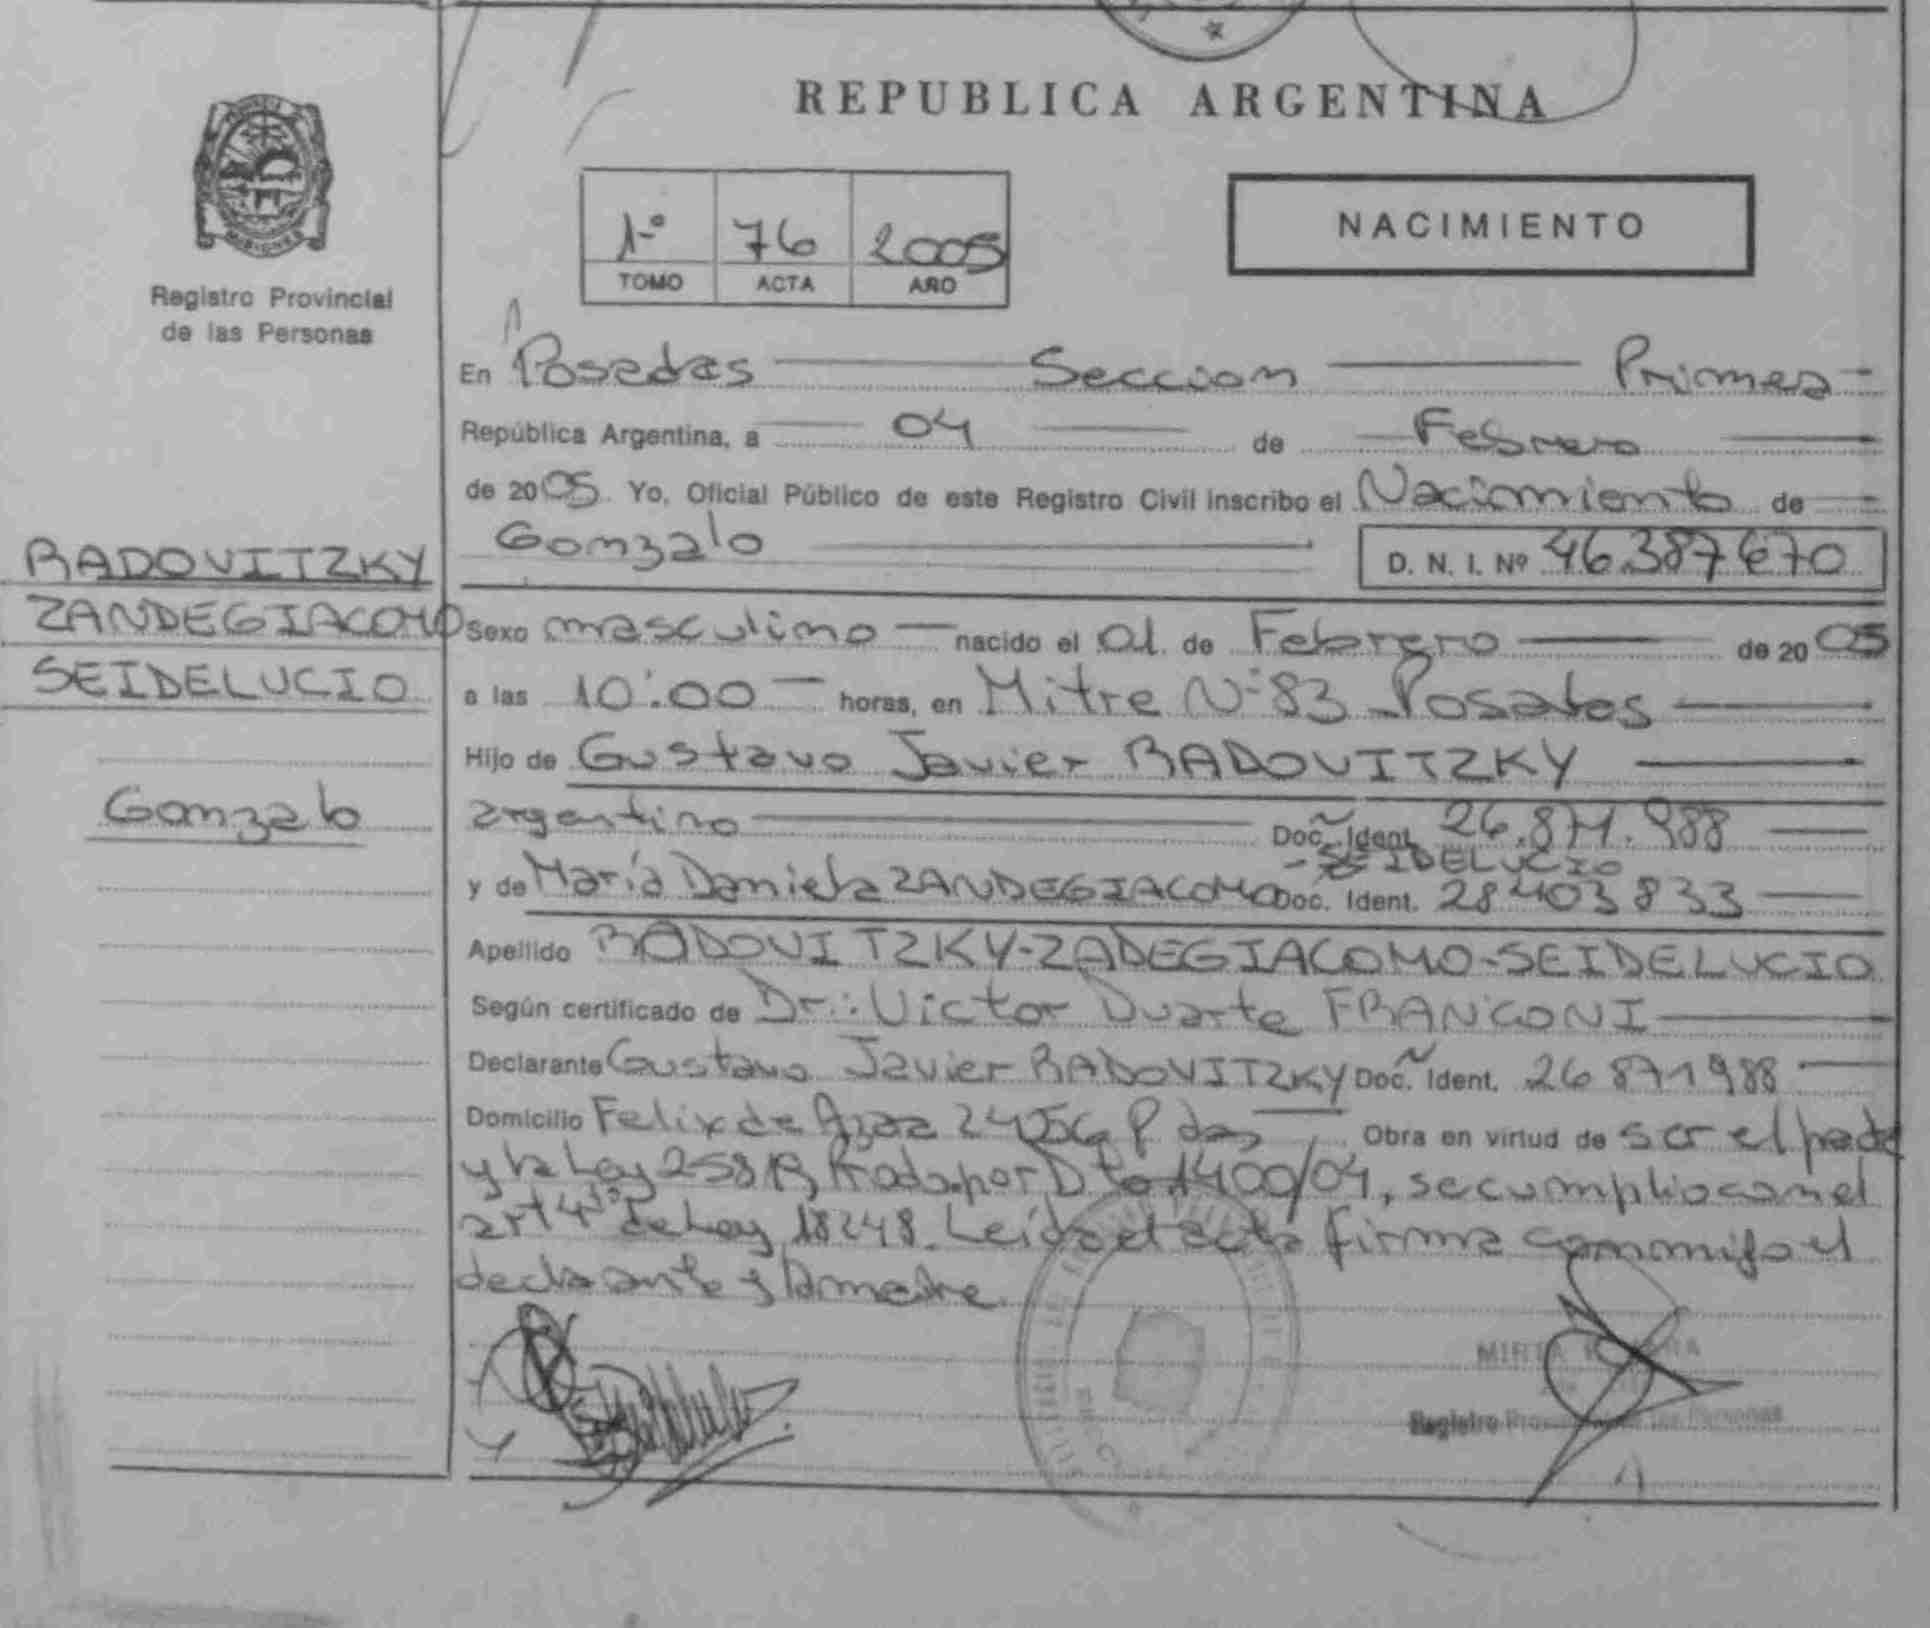 REPUBLICA ARGENTINA
MISIONES
Registro Provincial
de las Personas
1º 76 2005
TOMO ACTA AÑO
NACIMIENTO
En Posadas Seccion Primera
República Argentina, a 04 de Febrero
de 2005 Yo, Oficial Público de este Registro Civil inscribo el Nacimiento de
Gonzalo D. N. I. Nº 46.387670
RADOVITZKY
ZANDEGIACOMO
SEIDELUCIO
Gonzalo
Sexo masculino nacido el 01 de Febrero de 2005
a las 10:00 horas, en Mitre Nº83 Posadas
Hijo de Gustavo Javier RADOVITZKY
argentino Doc. Ident. 26.871.988
-SEIDELUCIO
y de María Daniela ZANDEGIACOMO Doc. Ident. 28403833
Apellido RADOVITZKY-ZADEGIACOMO-SEIDELUCIO
Según certificado de Dr.: Victor Duarte FRANCONI
Declarante Gustavo Javier RADOVITZKY Doc. Ident. 26871988
Domicilio Felix de Azara Pdas Obra en virtud de ser el padre
y la Ley 25819, Prada.por Dto 1400/04, se cumplio con el
art 4to de Ley 18248. Leida el acta firma conmigo el
declarante y la madre.
MIRTA
Registro Provincial de las Personas